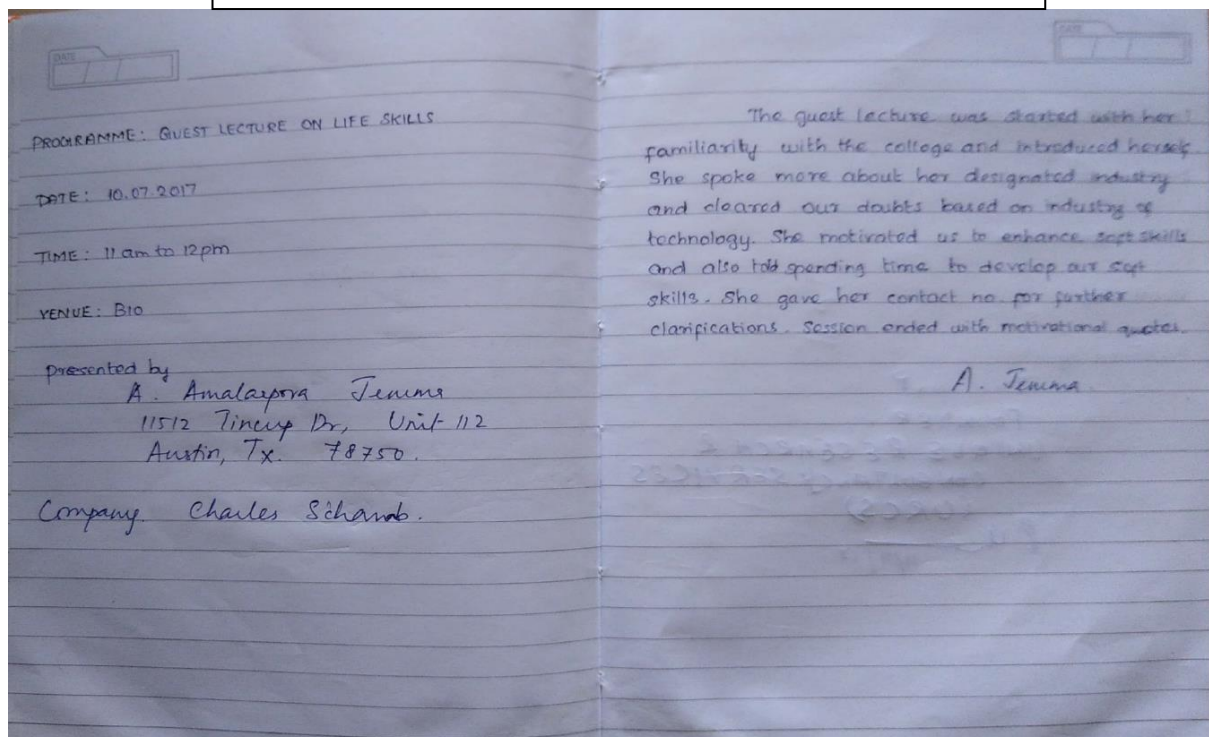 DATE
PROGRAMME: GUEST LECTURE ON LIFE SKILLS
DATE: 10.07.2017
TIME: 11 am to 12pm
VENUE: B10
presented by
A. Jemma
11512 Dr, Unit 112
Austin, Tx. 78750.
Company. Charles
DATE
The guest lecture was started with her
familiarity with the college and introduced herself.
She spoke more about her designated industry
and cleared our doubts based on industry of
technology. She motivated us to enhance soft skills
and also told spending time to develop our soft
skills. She gave her contact no for further
clarifications. Session ended with motivational quotes.
A. Jemma